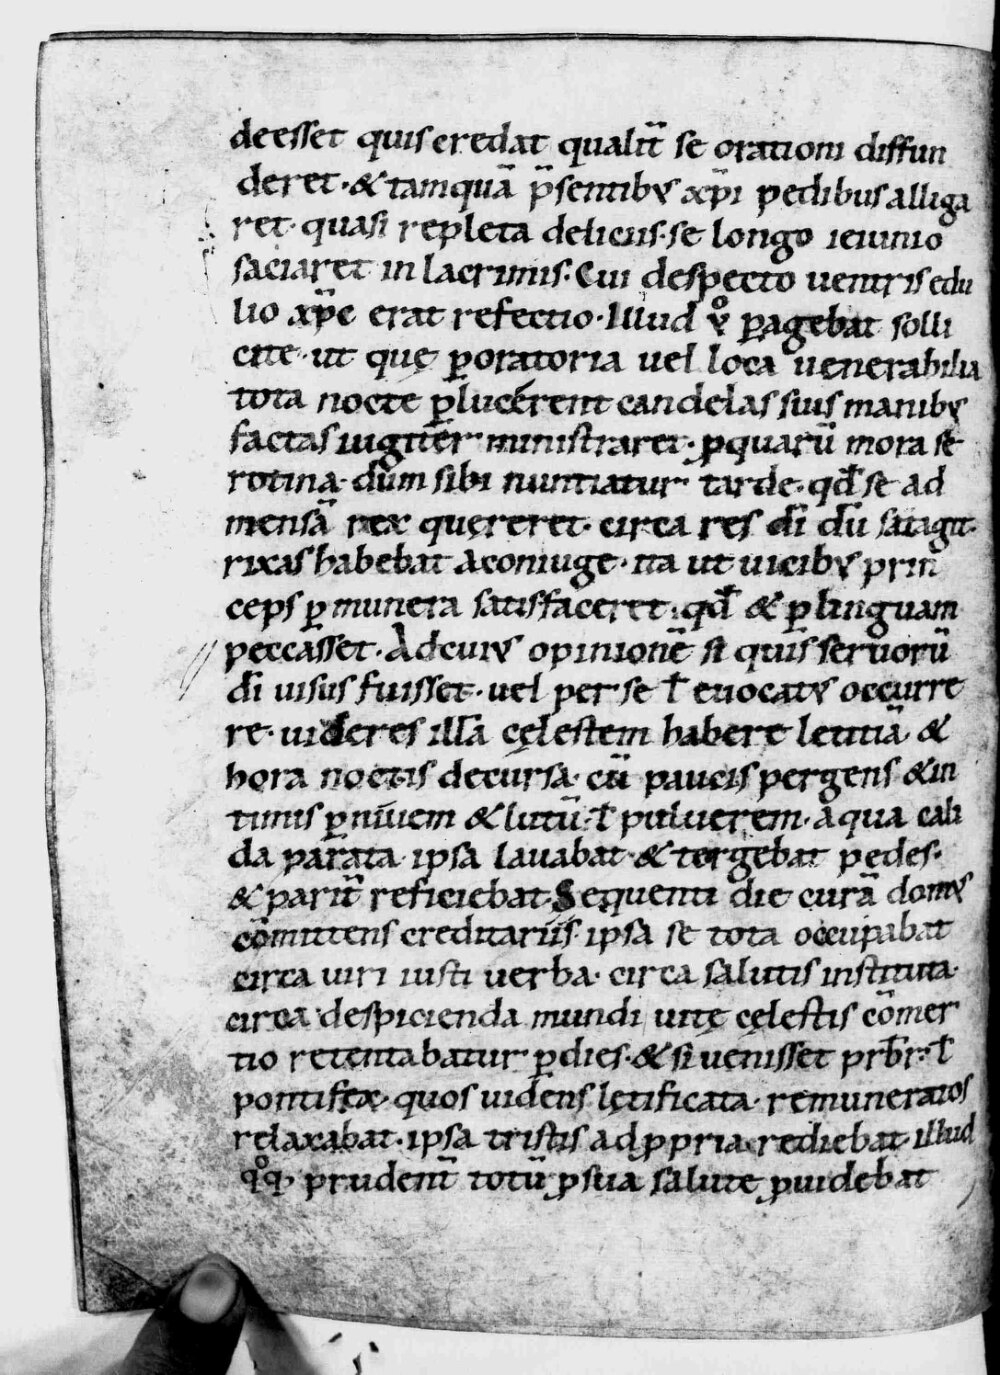 deesset quis credat qualit̄ se orationi diffun
deret· & tamquā p̄sentibꝰ xp̄i pedibus alliga
ret· quasi repleta deliciis· se longo ieiunio
saciaret in lacrimis· Cui despecto uentris edu
lio xp̄c erat refectio· Illud ꝟͦ ꝑagebat solli
cite· ut quę ꝑ oratoria uel loca uenerabilia
tota nocte ꝑlucerent candelas suis manibꝰ
factas iugiter ministraret· ꝓ quarū mora se
rotina· dum sibi nuntiatur tarde· qd̄ se ad
mensā rex quęreret· circa res dī dū satagit·
rixas habebat a coniuge· ita ut uicibꝰ prin
ceps ꝑ munera satisfaceret· qd̄ & ꝑ linguam
peccasset· Ad cuiꝰ opinionē si quis seruorū
dī uisus fuisset· uel per se ł euocatꝰ occurre
re· uideres illā cęlestem habere letitiā· &
hora noctis decursa· cū paucis pergens & in
timis ꝑ niuem & lutū· ł puluerem· aqua cali
da parata ipsa lauabat & tergebat pedes·
& parit̄ reficiebat· Sequenti die curā domꝰ
cōmittens creditariis· ipsa se tota occupabat
circa uiri iusti uerba· circa salutis instituta·
circa despicienda mundi uitę cęlestis cōmer
tio retentabatur ꝑ dies· & si uenisset prb̄r· ł
pontifex· quos uidens lętificata· remuneratos
relaxabat· ipsa tristis ad ꝓpria rediebat· illud
qͦq; prudent̄ totū ꝓ sua salute ꝓuidebat